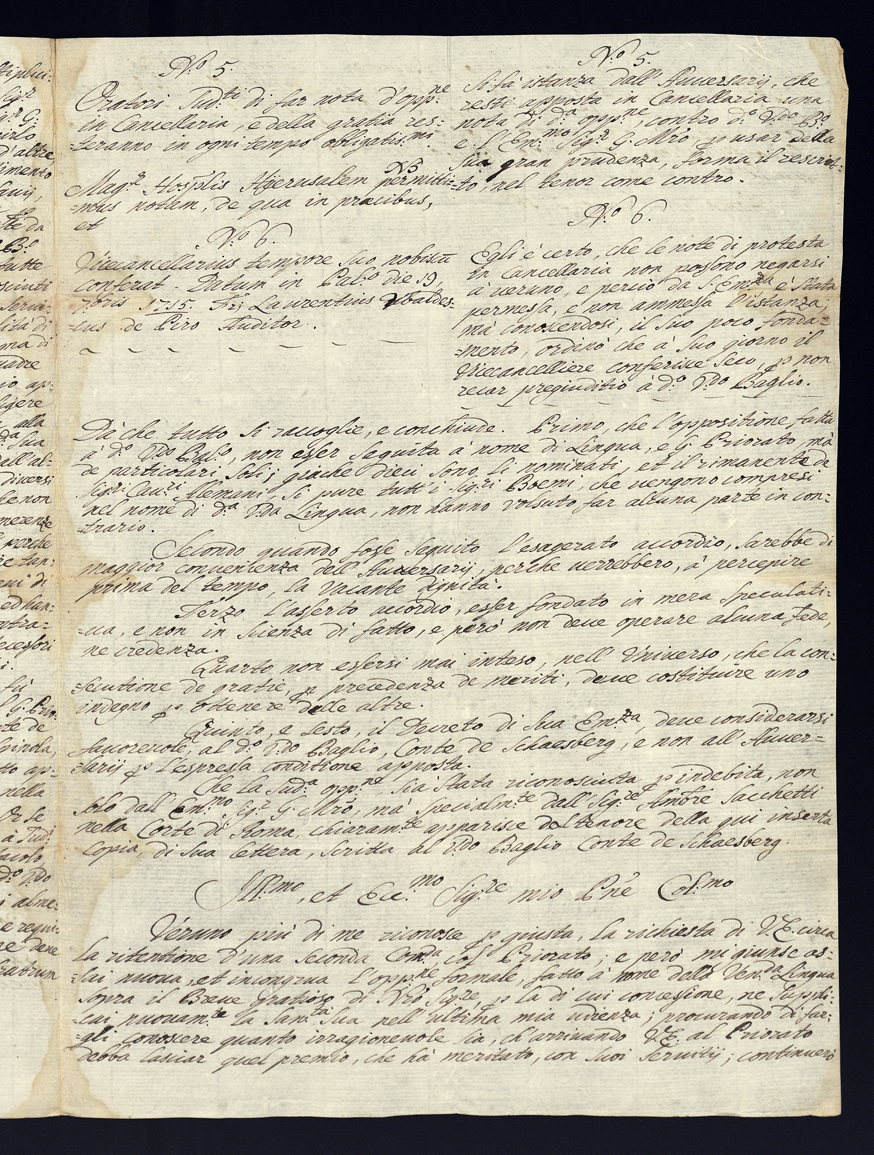 N.º 5.
Oratori Sud.ti di far nota d'opp.ne
in Cancellaria, e della gratia res-
teranno in ogni tempo obligatis.mi
Mag.r Hosp.lis Hyerusalem N.S. permitti-
-mus notam, de qua in præcibus,
et
N.º 6.
Vicecancellarius tempore suo nobiscu
conferat. Datum in Pal.º die 19,
7bris 1715. Fr; Laurentius Ubaldes-
-cus de Piro Auditor.
N.º 5.
Si fà istanza dall'Auversarij, che
resti apposta in Cancellaria una
nota di d.a opp.ne, contro d.º V.do B.º
e l'Em.mo Sig.r G. Mrõ p usar della
sua gran prudenza, forma il rescrit-
-to, nel tenor come contro.
N.º 6.
Egli è certo, che le note di protesta
in Cancellaria non possono negarsi
à veruno, e perciò da S. Em.za è stata
permessa, e non ammessa l'istanza,
mà conoscendosi, il suo poco fonda-
-mento, ordinò che à suo giorno il
Vicecancelliere conferisse seco, p non
recar pregiuditio à d.º V.do Baglio.
Dà che tutto si raccoglie, e conchiude. Primo, che l'oppositione fatta
à d.º V.do Bal.º, non esser seguita à nome di Lingua, e G. Priorato, mà
de particolari soli; giache dieci sono, li nominati, et il rimanente de
Sig.ri Cau.ri Alemani, si pure tutt'i Sig.ri Boemi, che vengono compresi
nel nome di d.a V.da Lingua, non hanno volsuto far alcuna parte in con-
-trario.
Secondo quando fosse seguito l'esagerato accordio, sarebbe di
maggior convenienza dell'Auversarij, perche verrebbero, à percepire
prima del tempo, la vacante dignità.
Terzo l'asserto accordio, esser fondato in mera speculati-
-ua, e non in scienza di fatto, e però non deve operare alcuna fede,
ne credenza.
Quarto non essersi mai inteso, nell'Universo, che la con-
-secutione de gratie, p precedenza de meriti, deve costituire uno
indegno p ottenere delle altre.
Quinto, e sesto, il Decreto di Sua Em.za, deve considerarsi
fauoreuole, al d.º V.do Baglio, Conte de Schaesberg, e non all'Auver-
-sarij p l'espressa conditione apposta.
Che la Sud.a opp.ne sia stata riconosciuta p indebita, non
solo dall'Em.mo Sig.r G. Mrõ, mà specialm.te dall'Sig.re Ambre Sacchetti
nella Corte di Roma, chiaram.te apparisce dal tenore della qui inserta
copia, di sua lettera, scritta al V.do Baglio Conte de Schaesberg.
Ill.mo, et Ecc.mo Sig.re mio P.ne Col.mo
Veruno più di me riconosce p giusta, la richiesta di V.E. circa
la ritentione d'una seconda Com.da, col Priorato; e però mi giunse as-
sai nuova, et incongrua l'opp.ne formale, fatta à nome della Ven.da Lingua
sopra il Breve gratioso di Nrõ Sig.re, p la di cui concessione, ne suppli-
cai nuovam.te la San.ta Sua nell'ultima mia udienza; procurando di far-
-gli conoscere quanto irragionevole sia, ch'arrivando V.E. al Priorato
debba lasciar quel premio, che hà meritato, con suoi servitij; continuerò